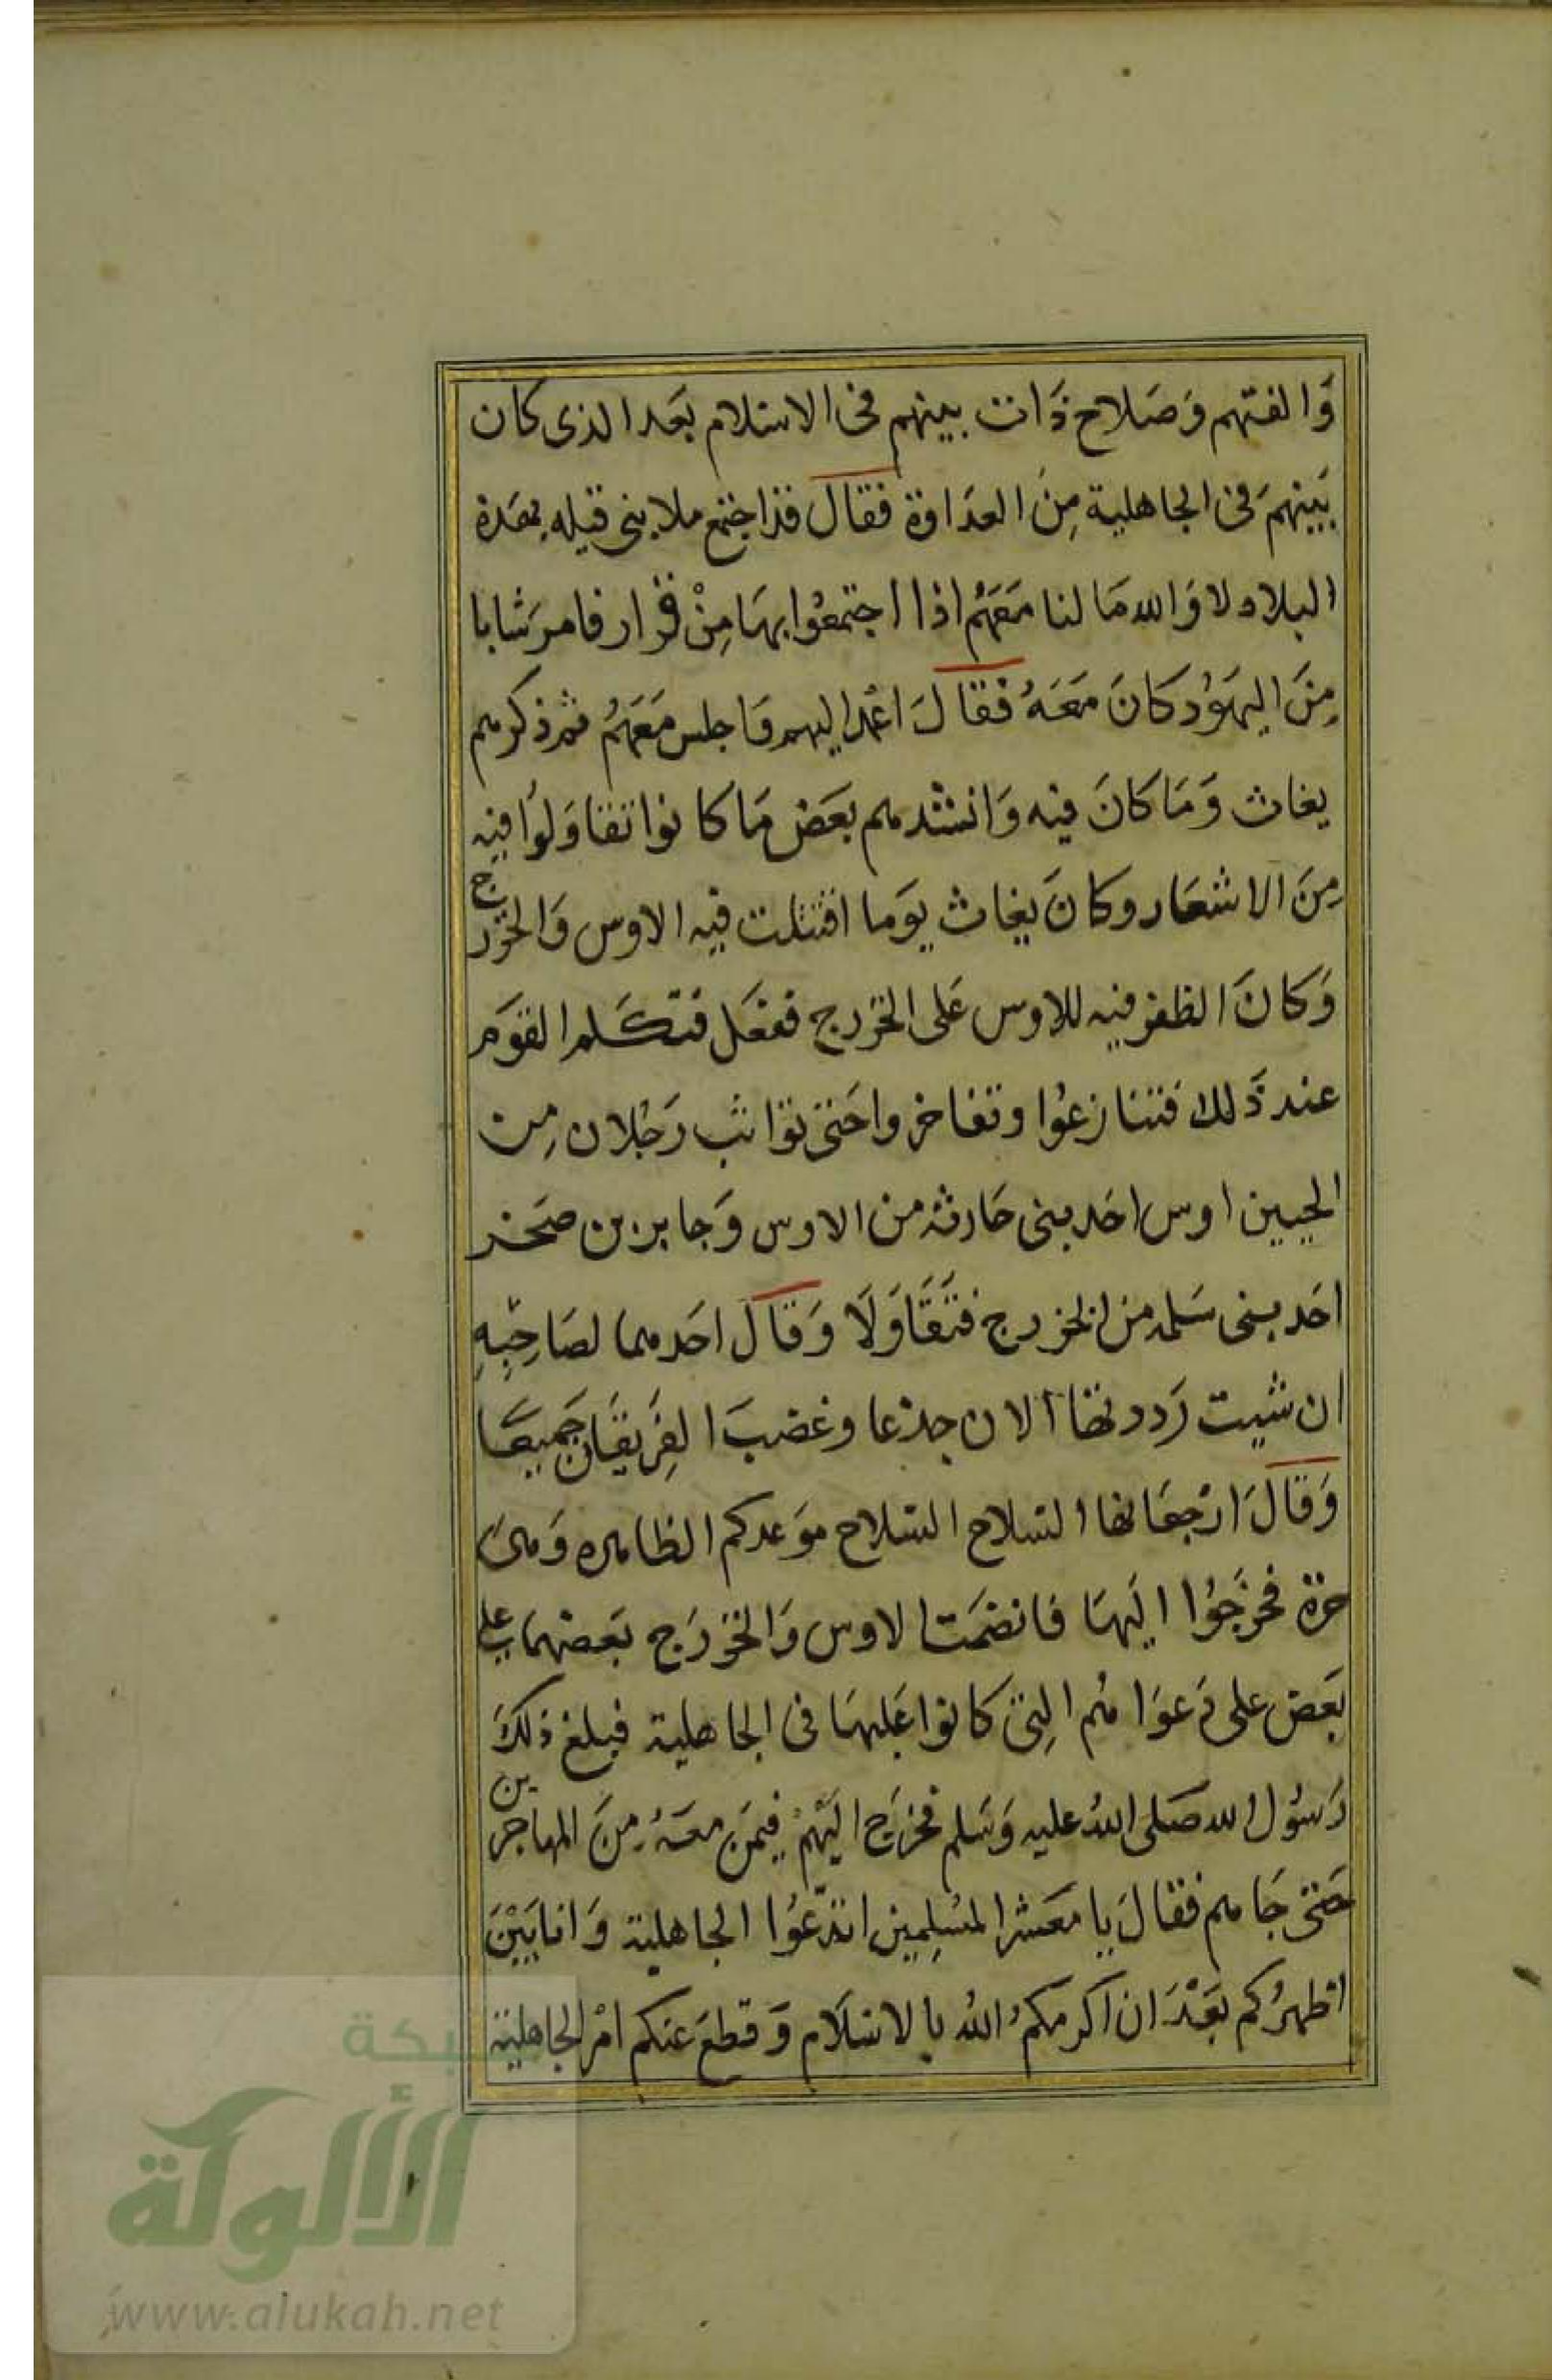 وَالفتهم وَصَلاح ذَات بينهم فى الاسلام بعَد الذى كان
بَينهمَ فى الجاهلية مِنَ العدَاوة فقال قد اجتمع ملا بنى قيله بهَذه
البلاد لا وَالله مَا لنا مَعَهُم اذا اجتمعُوا بهَا مِنْ قرار فامرَ شابا
مِنَ اليهوُد كانَ مَعَهُ فقالَ اعْمد اليهم وَاجلس مَعَهُم ثم ذكرهم
يغاث وَمَا كانَ فيه وَانشدهم بعَض مَا كانوا تقاوَلوُا فيه
مِنَ الاشعَار وكانَ يغاث يوَما اقتتلت فيه الاوس وَالخزرج
وَكانَ الظفر فيه للاوس عَلى الخزرج ففعَل فتكَلم القوَم
عند ذَلك فتنازعُوا وتفاخروا حَتى توَاثب رَجُلان مِن
الحيين اوس احَد بنى حَارثة من الاوس وَجابر بن صَخر
احَد بنى سَلمة من الخزرج فتَقَاوَلَا وَقاَل احَدهما لصَاحِبِهِ
ان شيت رَددناها الان جذعا وغضبَ الفِرَيقَان جَميعَا
وَقالَ ارْجعَاها السلاح السلاح موَعدكم الظاهره وَهىَ
حرة فخرَجُوا اليَهَا فانضمَت الاوس وَالخزرَج بعَضها على
بعَض على دَعوَاهُم التِى كانوا عَليهَا فى الجاهلية فبلغ ذلكَ
رَسُول الله صَلى اللهُ عليه وَسَلم فخرَج اليَهْم فيمَن معَهُ مِنَ المهاجرين
حَتى جَاهم فقالَ يا معَشر المسُلِمين اتدّعُوا الجاهلية وَانا بَيْنَ
اظهرُكم بعَدَ ان اكرمكمُ اللهُ بالاسَلام وَقطعَ عنكم امْر الجاهلية
شبكة
الألوكة
www.alukah.net